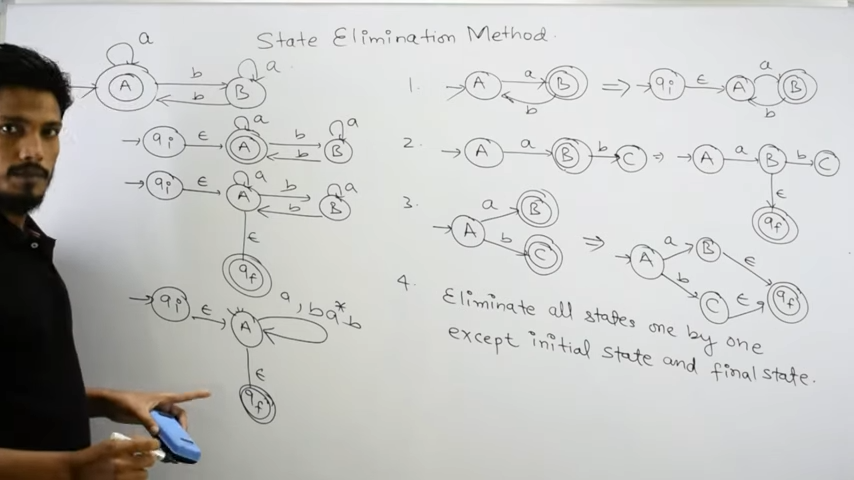 State Elimination Method.
a
A
b
b
B
a
qi
ε
A
a
b
b
B
a
qi
ε
A
a
b
b
B
a
ε
qf
qi
ε
A
a, ba*b
ε
qf
1.
A
a
b
B
⇒
qi
ε
A
a
b
B
2.
A
a
B
b
C
⇒
A
a
B
b
C
ε
qf
3.
A
a
B
b
C
⇒
A
a
B
ε
b
C
ε
qf
4.
Eliminate all states one by one
except initial state and final state.